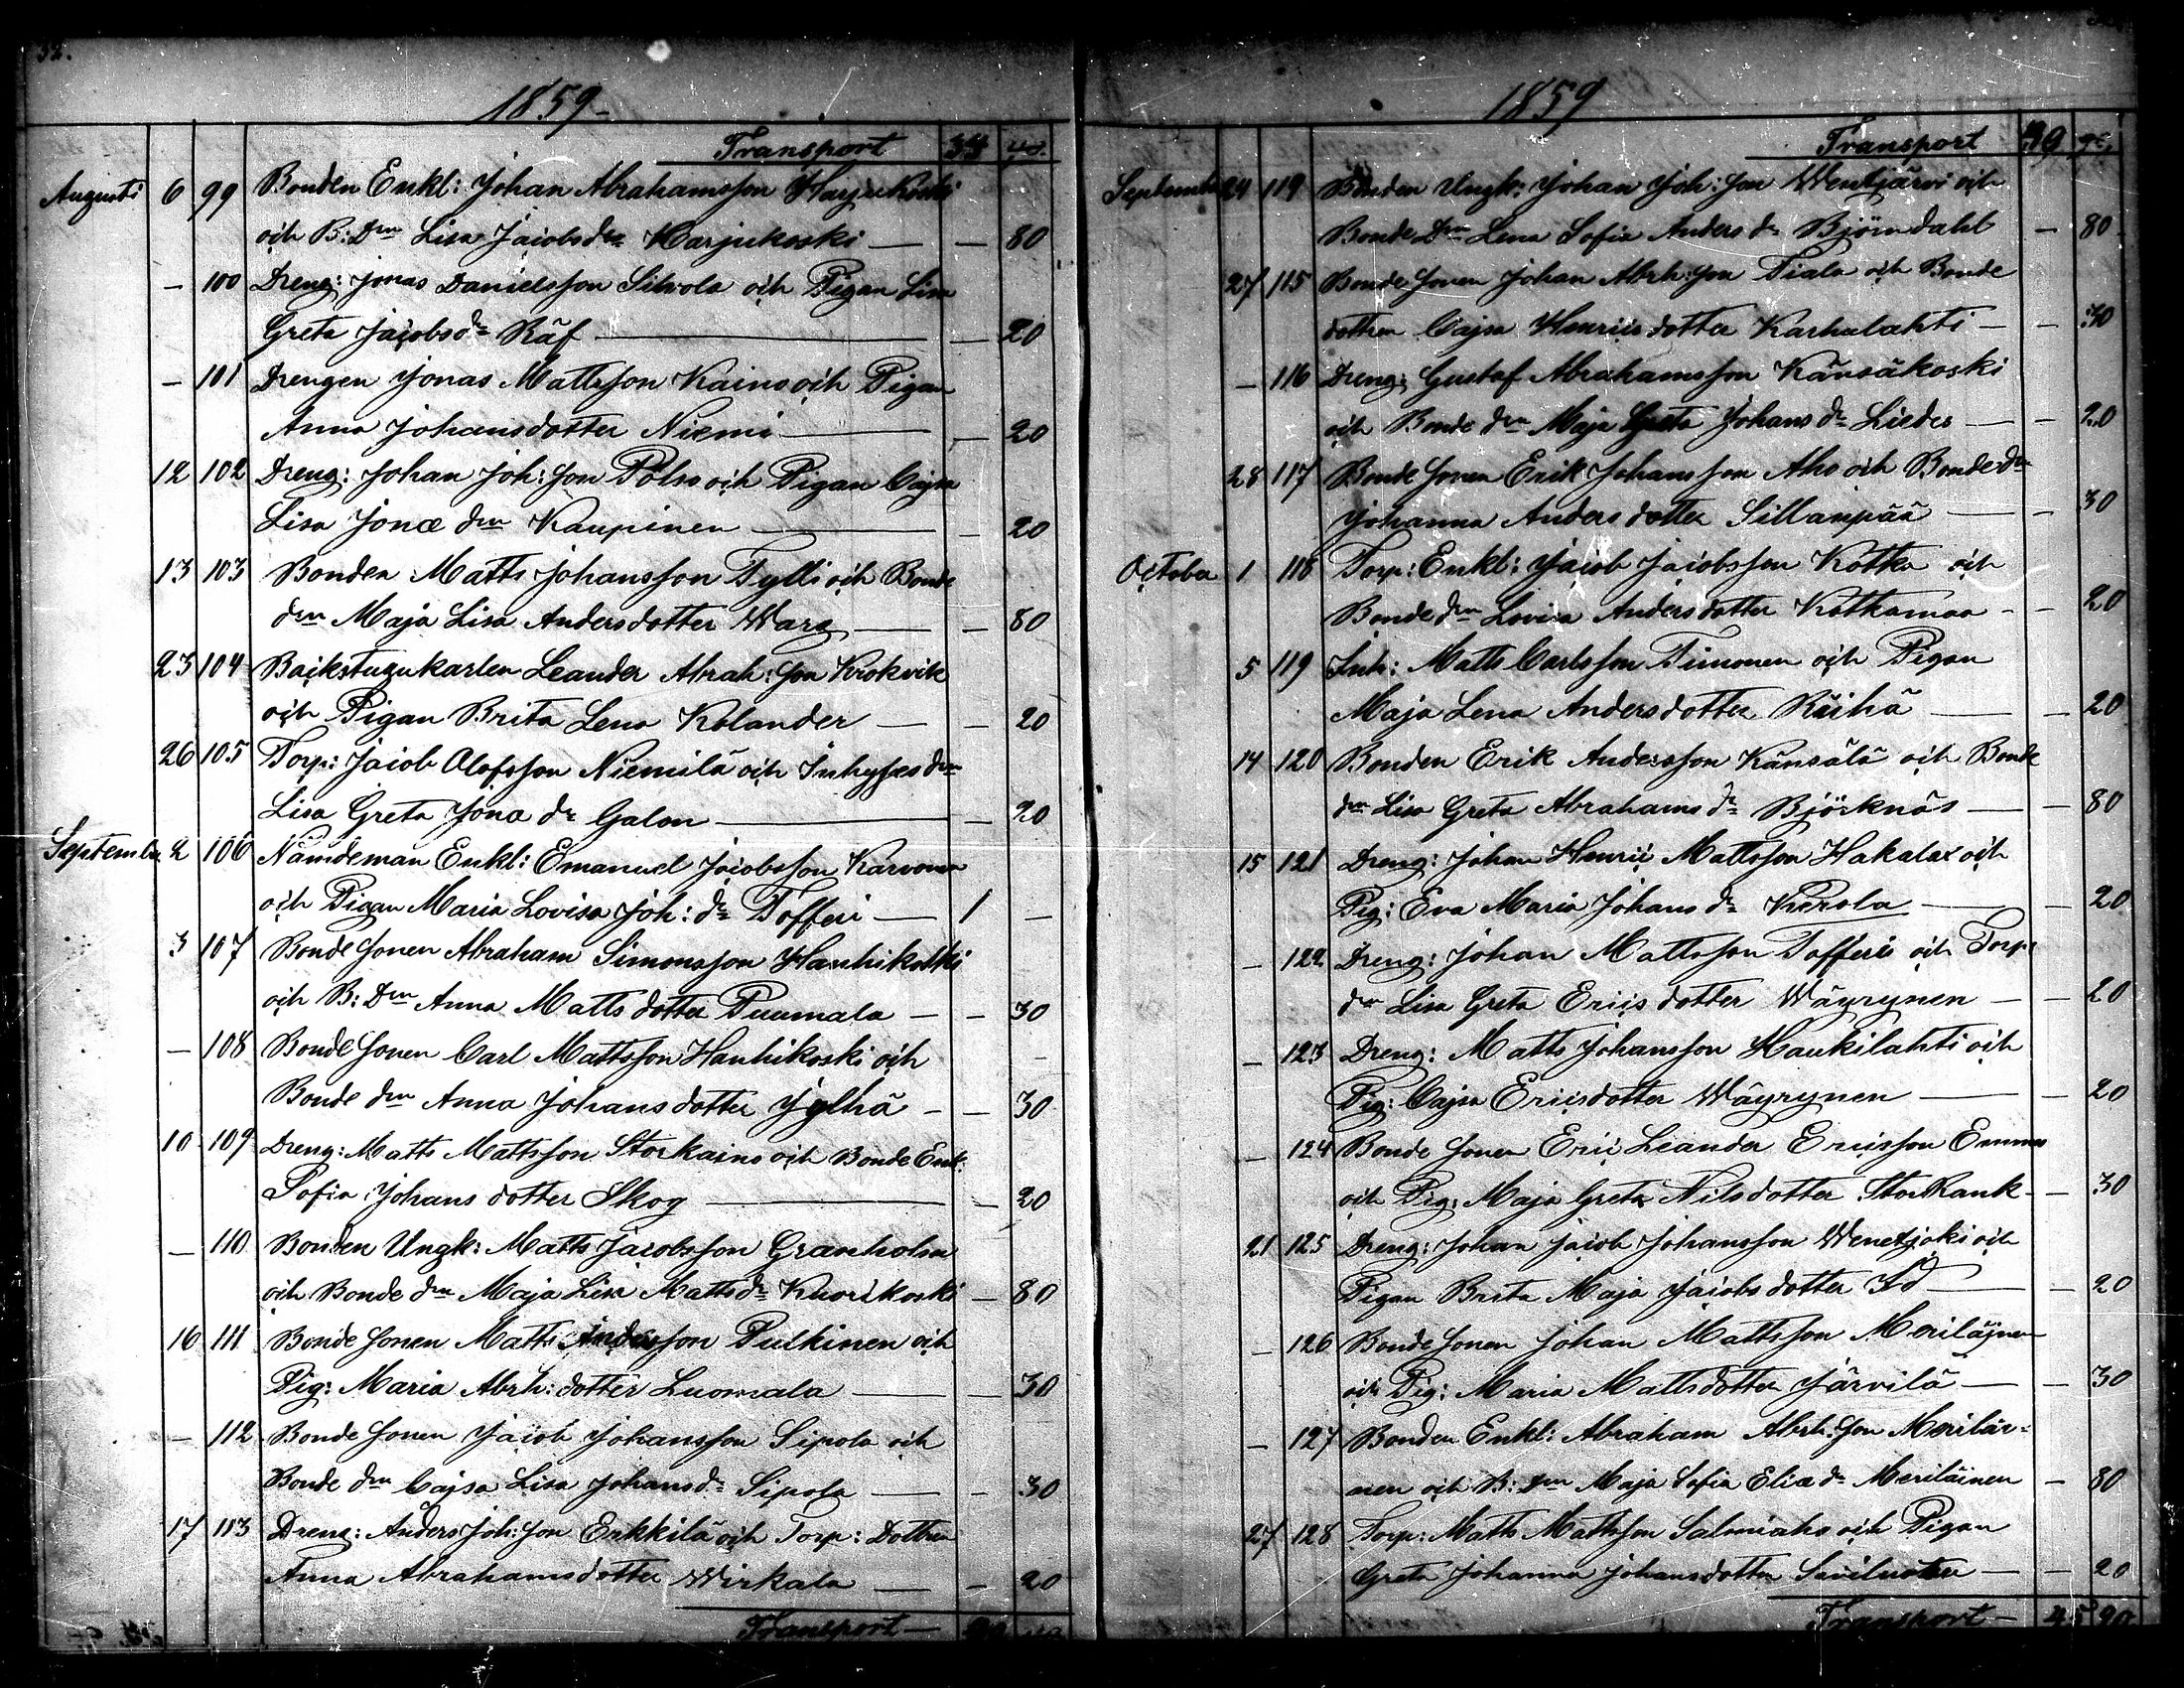 32.
1859
Transport 34 40.
Augusti 6 99 Bonden Enkl: Johan Abrahamsson Harjukoski
och B: Dn Lisa Jacobs dr Harjukoski — — 80
— 100 Dreng: Jonas Danielsson Silvola och Pigan Lisa
Greta Jacobs dr Räf — — 20
— 101 Drengen Jonas Mattsson Kaino och Pigan
Anna Johansdotter Niemi — — 20
12 102 Dreng: Johan Joh: son Pölso och Pigan Cajsa
Lisa Jonæ dn Kaupinen — — 20
13 103 Bonden Matts Johansson Tylli och Bonde
dn Maja Lisa Andersdotter Warg — — 80
23 104 Backstugukarlen Leander Abrah: son Krokvik
och Pigan Brita Lena Kolander — — 20
26 105 Torp: Jacob Olofsson Niemilä och Inhyses dn
Lisa Greta Jona dr Galon — — 20
September 2 106 Nämdeman Enkl: Emanuel Jacobsson Karvonen
och Pigan Maria Lovisa Joh: dr Tofferi — 1 —
3 107 Bonde sonen Abraham Simonsson Hanhikoski
och B: Dn Anna Matts dotter Puumala — — 30
— 108 Bonde sonen Carl Mattsson Hanhikoski och
Bonde dn Anna Johans dotter Jylhä — — 30
10 109 Dreng: Matts Mattsson Storkaino och Bonde Enk:
Sofia Johans dotter Skog — — 20
— 110 Bonden Ungk: Matts Jacobsson Granholm
och Bonde dn Maja Lisa Matts dr Kuorikoski — 80
16 111 Bonde sonen Matts Andersson Pulkinen och
Pig: Maria Abrh: dotter Luomala — — 30
— 112 Bonde sonen Jacob Johansson Sipola och
Bonde dn Cajsa Lisa Johans dr Sipola — — 30
17 113 Dreng: Anders Joh: son Erkkilä och Torp: Dottren
Anna Abrahamsdotter Wirkala — — 20
Transport —
1859
Transport 39
September 24 119 Bonden Ungk: Johan Joh: son Wentjärvi och
Bonde Dn Lena Sofia Anders dr Björndahl — 80
27 115 Bonde sonen Johan Abrh: son Tiala och Bonde
dottren Cajsa Henrics dotter Karhulahti — — 30
— 116 Dreng: Gustaf Abrahamsson Känsäkoski
och Bonde dn Maja Greta Johans dr Liedes — — 20
28 117 Bonde sonen Erik Johansson Aho och Bonde dn
Johanna Anders dotter Sillanpää — — 30
October 1 118 Torp: Enkl: Jacob Jacobsson Kotka och
Bonde dn Lovisa Andersdotter Kotkamaa — — 20
5 119 Inh: Matts Carlsson Timonen och Pigan
Maja Lena Andersdotter Räihä — — 20
14 120 Bonden Erik Andersson Känsälä och Bonde
dn Lisa Greta Abrahams dr Björknäs — — 80
15 121 Dreng: Johan Henric Mattsson Hakala och
Pig: Eva Maria Johans dr Kerola — — 20
— 122 Dreng: Johan Mattsson Tofferi och Torp:
dn Lisa Greta Erics dotter Wäyrynen — — 20
— 123 Dreng: Matts Johansson Haukilahti och
Pig: Cajsa Ericsdotter Wäyrynen — — 20
— 124 Bonde sonen Eric Leander Ericsson Emmes
och Pig: Maja Greta Nilsdotter Storkank — 30
21 125 Dreng: Johan Jacob Johansson Wenetjoki och
Pigan Brita Maja Jacobs dotter Id — — 20
— 126 Bonde sonen Johan Mattsson Meriläinen
och Pig: Maria Mattsdotter Järvilä — — 30
— 127 Bonden Enkl: Abraham Abrh: son Meriläi-
nen och B: Dn Maja Sofia Eliæ dr Meriläinen — 80
27 128 Torp: Matts Mattsson Salmiaho och Pigan
Greta Johanna Johansdotter — — 20
Transport — 45 90